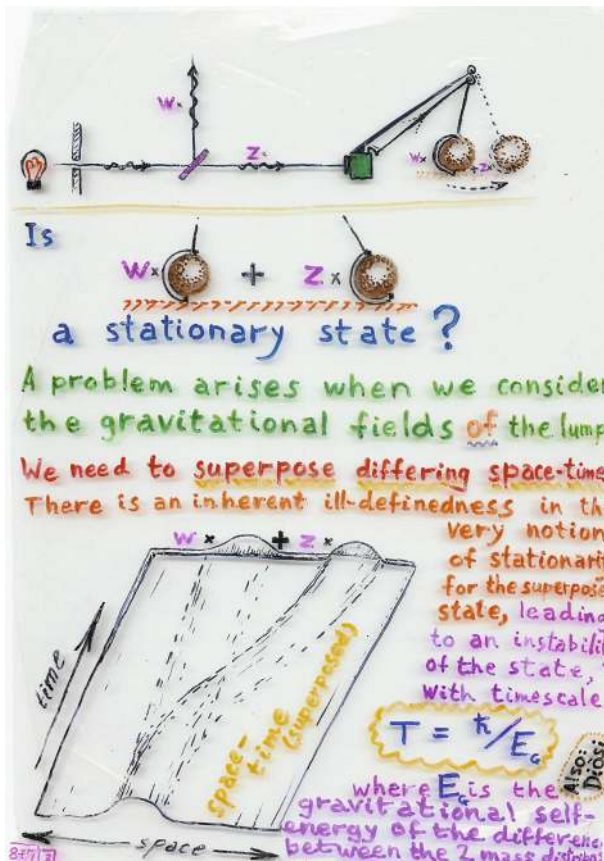 w×
z×
w× +z×
Is
w× + z×
a stationary state?
A problem arises when we consider
the gravitational fields of the lump
We need to superpose differing space-time
There is an inherent ill-definedness in th
very notion
of stationari
for the superpose
state, leading
to an instabili
of the state,
with timescale
T = ħ/E_G
Also:
Diósi
where E_G is the
gravitational self-
energy of the differenc
between the 2 mass distrib
w× + z×
time
space-
time
(superposed)
space